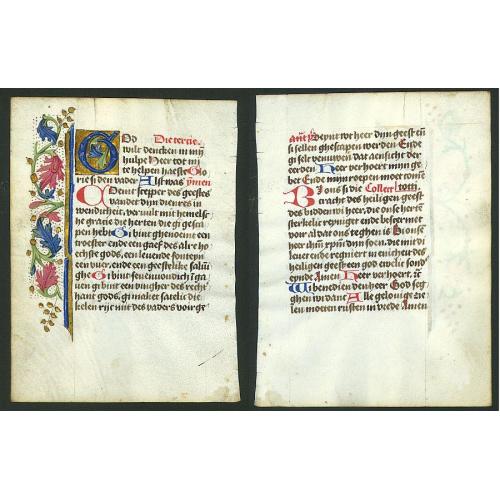 God Die terne
wilt dencken in mij
hulpe Heer tot mij
te helpen haeste Glo
rie si den vader Alst was ymen
Coemt scepper des geestes
van det dijn dieners in
wendicheit, vervult mit hemelsche
gracie die herten die gi gesca
pen hebt Gi bint ghenoemt een
troester ende een gaef des alre ho
echste gods, een levende fonteyn
een vuer, ende een geestlike salui
ghe Gi bint sevenvoudich i gaven
gi bint een vingher des rechter
hant gods, gi maket saelic die
kelen rijc mit des vaders voirge
ant Seynt wt heer dijn geest en
si sellen ghescapen werden Ende
gi selt vernuwen dat aensicht der
eerden Heer verhoert mijn ge
bet Ende mijn roepen moet come
Ons si die Collect
cracht des heiligen geest
des bidden wi heer, die onse herte
sterkelic reyniget ende bescerm
voir al dat ons te ghen is Bi onse
heer ihu xpm dijn soen, die mit di
levet ende regniert in enicheit des
heiligen geest een god ewelic sond
eynde Amen Heer verhoert, en
Wi benedien den heer God seg
ghen wi danc Alle gelovige zie
len moeten rusten in vrede Amen